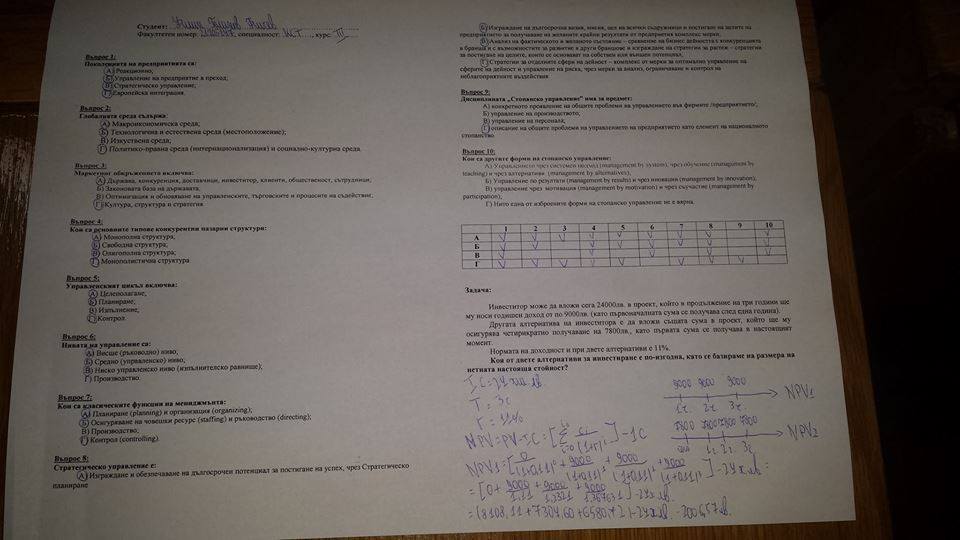 Студент:
Факултетен номер: специалност: И.Т., курс: III
Въпрос 1:
Поколенията на предприятията са:
А) Реакционно;
Б) Управление на предприятие в преход;
В) Стратегическо управление;
Г) Европейска интеграция.
Въпрос 2:
Глобалната среда съдържа:
А) Макроикономическа среда;
Б) Технологична и естествена среда (местоположение);
В) Изкуствена среда;
Г) Политико-правна среда (интернационализация) и социално-културна среда.
Въпрос 3:
Маркетинг обкръжението включва:
А) Държава, конкуренция, доставчици, инвеститор, клиенти, общественост, сътрудници;
Б) Законовата база на държавата;
В) Оптимизация и обновяване на управленските, търговските и процесите на съдействие;
Г) Култура, структура и стратегия.
Въпрос 4:
Кои са основните типове конкурентни пазарни структури:
А) Монополна структура,
Б) Свободна структура,
В) Олигополна структура;
Г) Монополистична структура
Въпрос 5:
Управленският цикъл включва:
А) Целеполагане;
Б) Планиране;
В) Изпълнение;
Г) Контрол.
Въпрос 6:
Нивата на управление са:
А) Висше (ръководно) ниво;
Б) Средно (управленско) ниво;
В) Ниско управленско ниво (изпълнителско равнище);
Г) Производство.
Въпрос 7:
Кои са класическите функции на мениджмънта:
А) Планиране (planning) и организация (organizing);
Б) Осигуряване на човешки ресурс (staffing) и ръководство (directing);
В) Производство;
Г) Контрол (controlling)
Въпрос 8:
Стратегическо управление е:
А) Изграждане и обезпечаване на дългосрочен потенциал за постигане на успех, чрез Стратегическо
планиране
Б) Изграждане на дългосрочни визия, мисия, цел на всички съдружници и постигане на целите на
предприятието за получаване на желаните крайни резултати от предприетия комплекс мерки;
В) Анализ на фактическото и желаното състояние – сравнение на бизнес дейността с конкуренцията
в бранша и с възможностите за развитие в други браншове и изграждане на стратегии за растеж – стратегии
за постигане на целите, които се основават на собствен или външен потенциал;
Г) Стратегии за отделните сфери на дейност – комплекс от мерки за оптимално управление на
сферите на дейност и управление на риска, чрез мерки за анализ, ограничаване и контрол на
неблагоприятните въздействия.
Въпрос 9:
Дисциплината „Стопанско управление” има за предмет:
А) конкретното проявление на общите проблеми на управлението във фирмите /предприятието/;
Б) управление на производството;
В) управление на персонала;
Г) описание на общите проблеми на управлението на предприятието като елемент на националното
стопанство.
Въпрос 10:
Кои са другите форми на стопанско управление:
А) Управлението чрез системен подход (management by system), чрез обучение (management by
teaching) и чрез алтернативи (management by alternatives);
Б) Управление по резултати (management by results) и чрез иновации (management by innovation);
В) управление чрез мотивация (management by motivation) и чрез съучастие (management by
participation);
Г) Нито една от изброените форми на стопанско управление не е вярна.
1 2 3 4 5 6 7 8 9 10
А V V V V V V V V V
Б V V V V V V V
В V V V V
Г V V V V V V V V
Задача:
Инвеститор може да вложи сега 24000лв. в проект, който в продължение на три години ще
му носи годишен доход от по 9000лв. (като първоначалната сума се получава след една година).
Другата алтернатива на инвеститора е да вложи същата сума в проект, който ще му
осигурява четирикратно получаване на 7800лв., като първата сума се получава в настоящият
момент.
Нормата на доходност и при двете алтернативи е 11%.
Коя от двете алтернативи за инвестиране е по-изгодна, като се базираме на размера на
нетната настояща стойност?
IC=24 хил лв
9000 9000 9000
T = 3г
1г. 2г. 3г.
NPV1
r = 11%
7800 7800 7800 7800
NPV2
1г. 2г. 3г
NPV=PV-IC=
NPV1=
= [0 + 9000/1,11 + 9000/1,2321 + 9000/1,367631] - 24 х. лв.
= (8108,11 + 7304,60 + 6580,72) - 24 х. лв. -2006,57 лв.